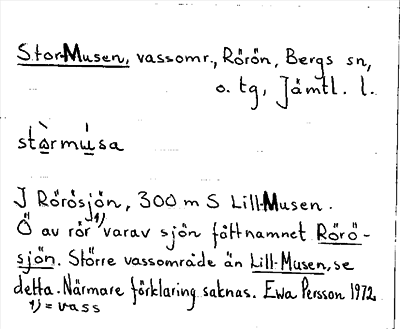 Stor-Musen, vassomr., Rörön, Bergs sn,
o. tg, Jämtl. l.
stòrmúsa
I Rörösjön, 300 m S Lill-Musen.
Ö av rör¹⁾ varav sjön fått namnet Rörö-
sjön. Större vassområde än Lill-Musen, se
detta. Närmare förklaring saknas. Ewa Persson 1972
1) = vass